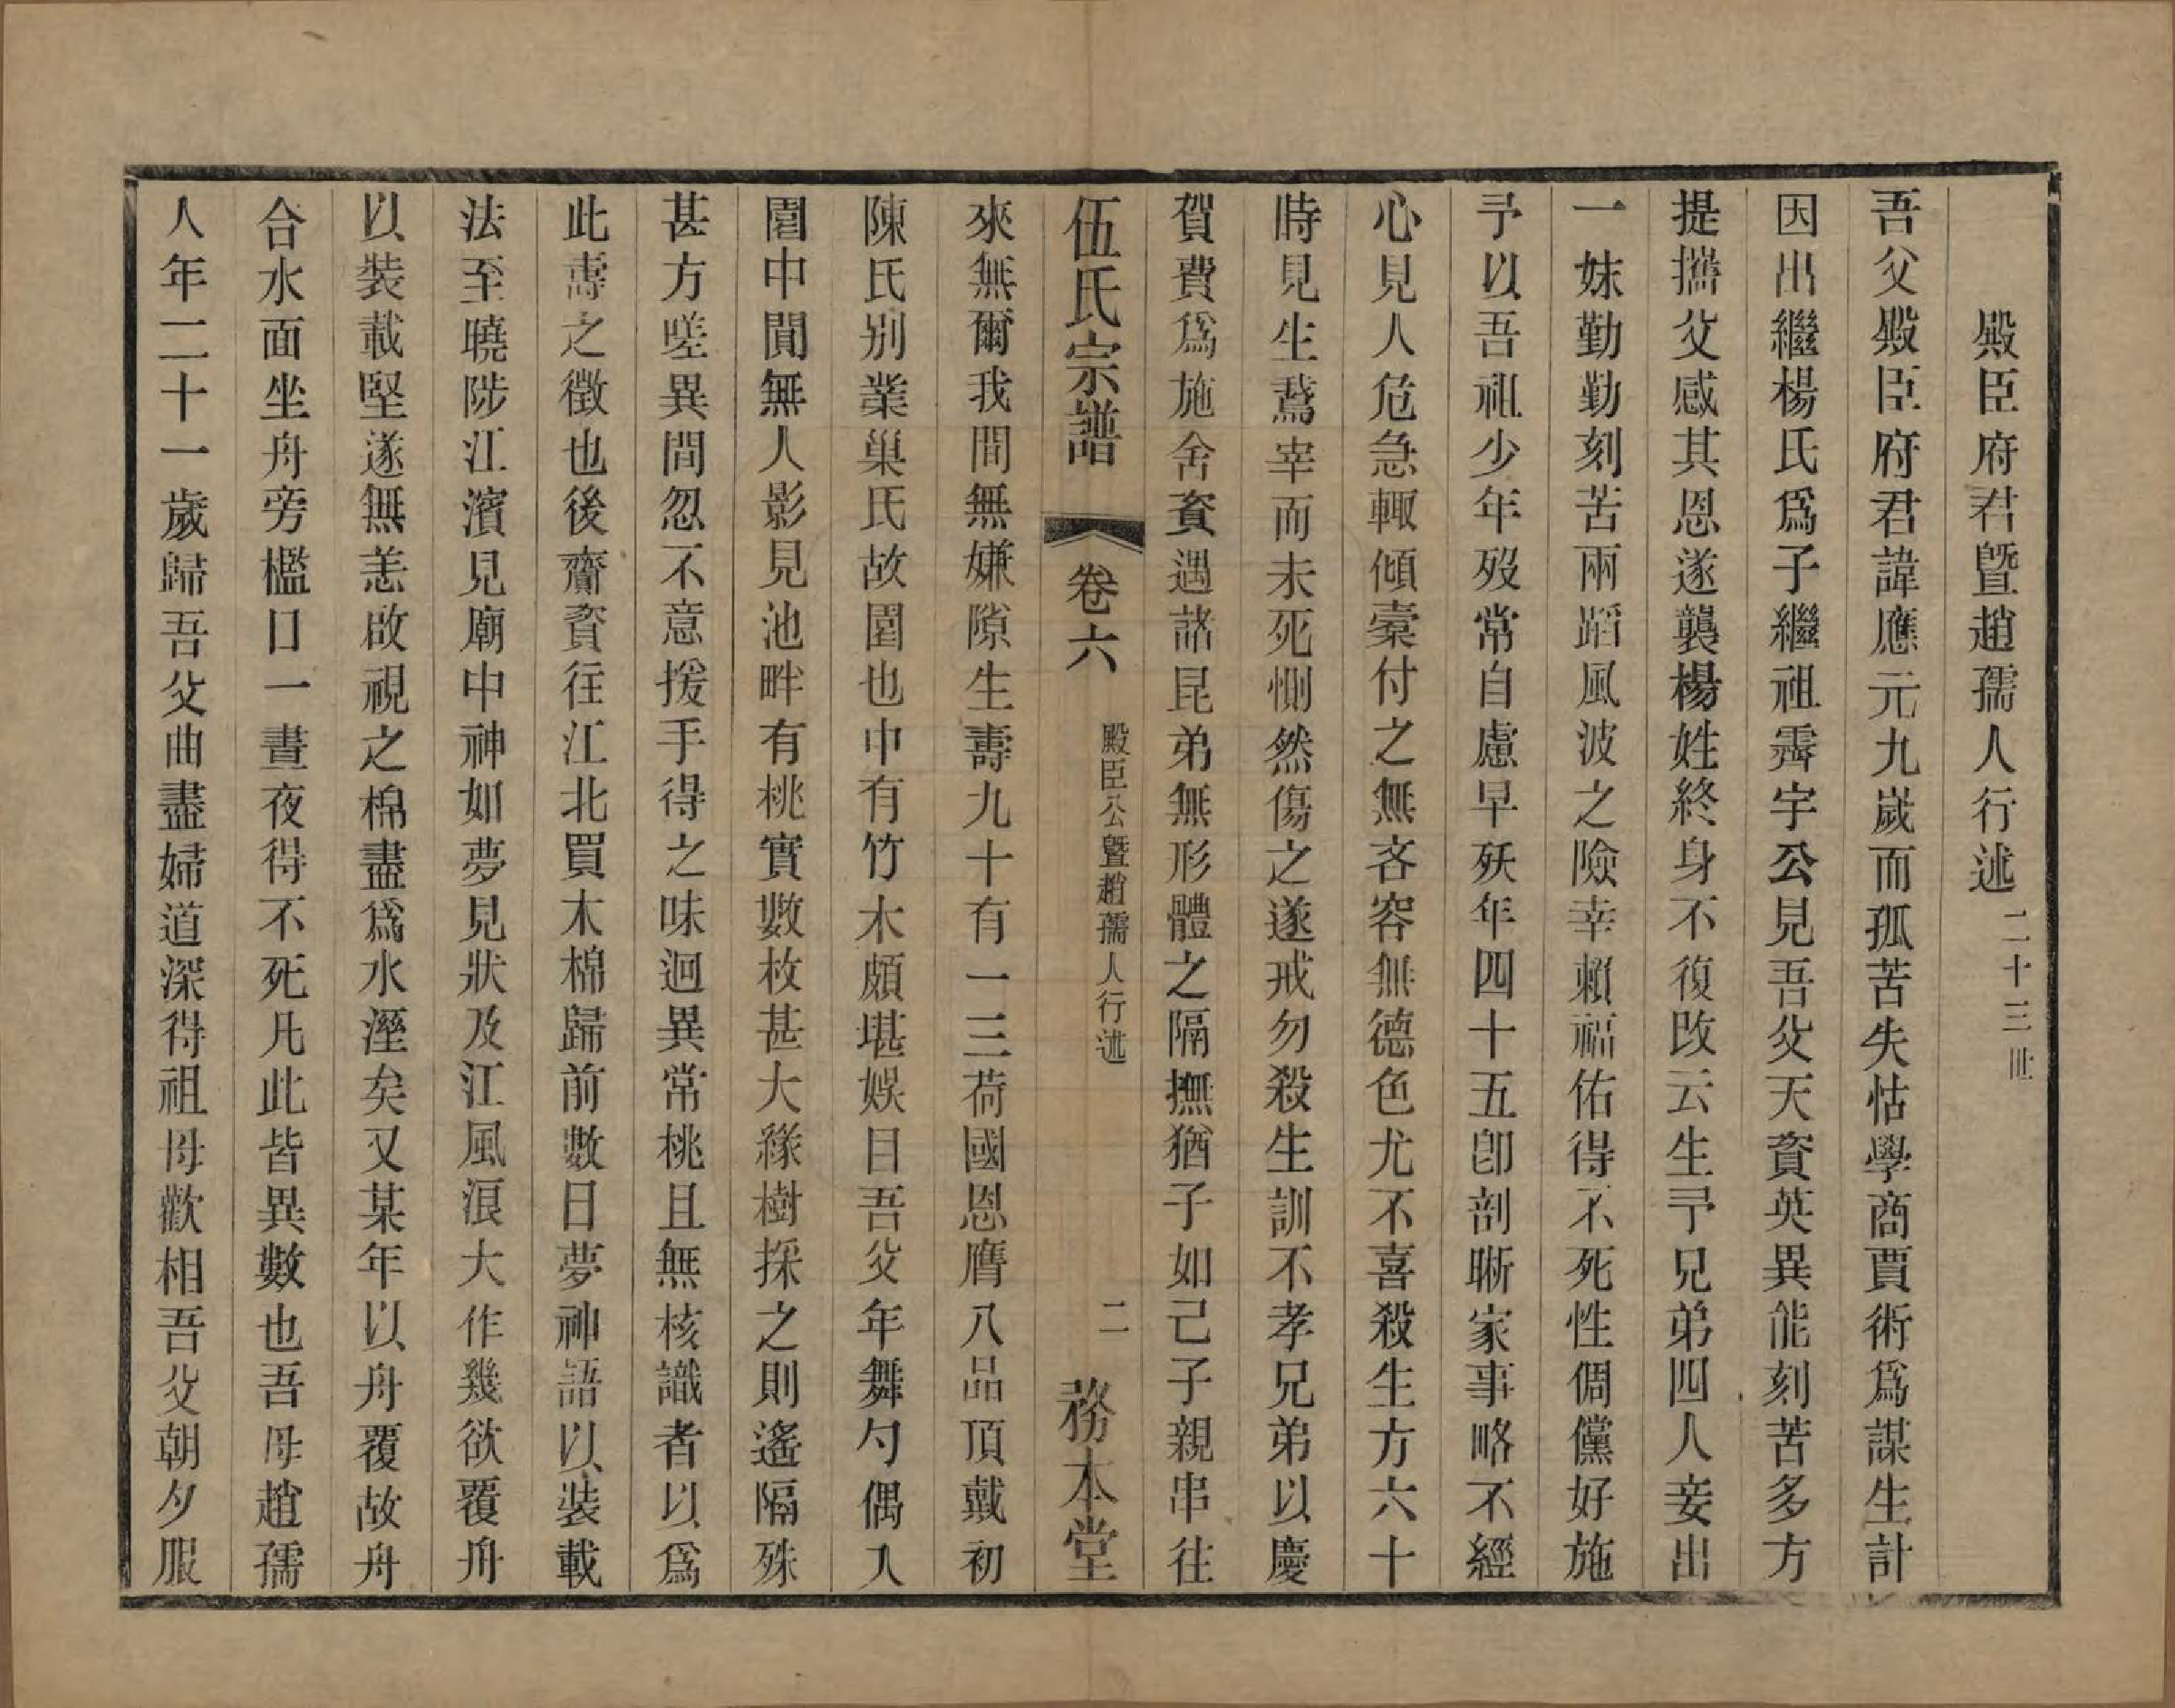 殿臣府君暨趙孺人行述二十三世
吾父殿臣府君諱應元九歲而孤苦失怙學商賈術爲謀生計
因出繼楊氏爲子繼祖霽宇公見吾父天資英異能刻苦多方
提攜父感其恩遂襲楊姓終身不復改云生予兄弟四人妾出
一妹勤勤刻苦兩蹈風波之險幸賴福佑得不死性倜儻好施
予以吾祖少年歿常自慮早殀年四十五卽剖晰家事略不經
心見人危急輙傾橐付之無吝容無德色尤不喜殺生方六十
時見生鵞宰而未死惻然傷之遂戒勿殺生訓不孝兄弟以慶
賀費爲施舍資遇諸昆弟無形體之隔撫猶子如己子親串往
伍氏宗譜 卷六 殿臣公暨趙孺人行述 二 務本堂
來無爾我間無嫌隙生壽九十有一三荷國恩膺八品頂戴初
陳氏别業巢氏故園也中有竹木頗堪娛目吾父年舞勺偶入
園中閴無人影見池畔有桃實數枚甚大緣樹採之則遙隔殊
甚方嗟異間忽不意援手得之味迴異常桃且無核識者以爲
此壽之徵也後齎資往江北買木棉歸前數日夢神語以裝載
法至曉陟江濱見廟中神如夢見狀及江風浪大作幾欲覆舟
以裝載堅遂無恙啟視之棉盡爲水溼矣又某年以舟覆故舟
合水面坐舟旁檻口一晝夜得不死凡此皆異數也吾母趙孺
人年二十一歲歸吾父曲盡婦道深得祖母歡相吾父朝夕服